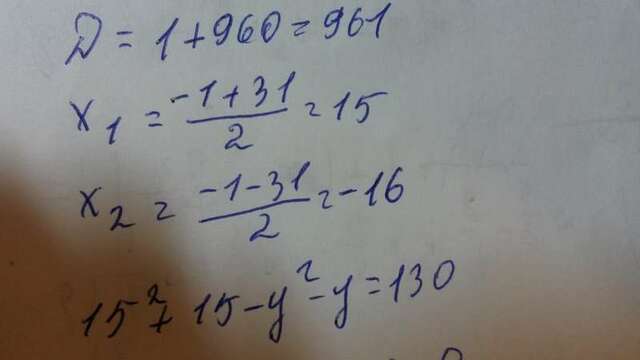 D = 1 + 960 = 961
x₁ = (-1 + 31)/2 = 15
x₂ = (-1 - 31)/2 = -16
15² + 15 - y² - y = 130